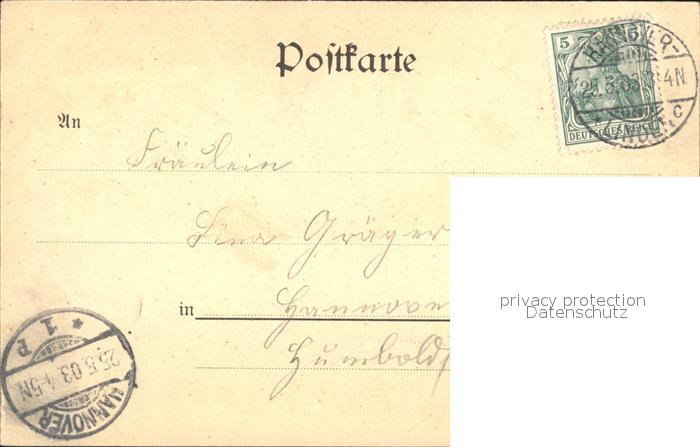 Postkarte
5 5
DEUTSCHES REICH
HANNOVER-
3-4N
C
An
Fräulein
Lina Gräger
in Hannove
Humbold
privacy protection
Datenschutz
* 1 P
25.5.03. 4-5N
HANNOVER